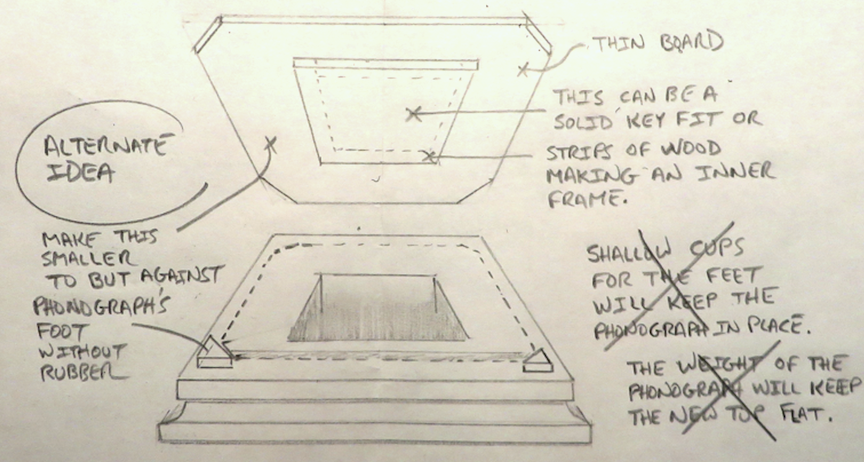 THIN BOARD
THIS CAN BE A
SOLID KEY FIT OR
STRIPS OF WOOD
MAKING AN INNER
FRAME.
ALTERNATE
IDEA
MAKE THIS
SMALLER
TO BUT AGAINST
PHONOGRAPH'S
FOOT
WITHOUT
RUBBER
SHALLOW CUPS
FOR THE FEET
WILL KEEP THE
PHONOGRAPH IN PLACE.
THE WEIGHT OF THE
PHONOGRAPH WILL KEEP
THE NEW TOP FLAT.